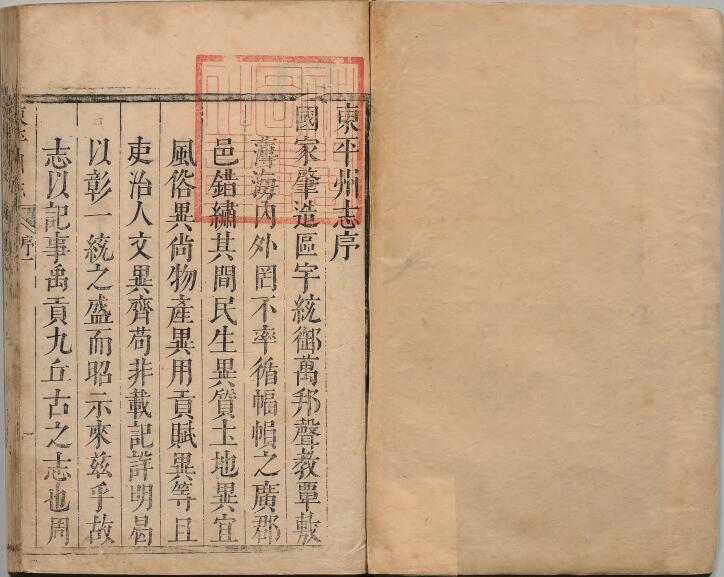 東平州志序
國家肇造區宇統御萬邦聲教覃敷
薄海內外罔不率循幅幀之廣郡
邑錯繡其間民生異質土地異宜
風俗異尚物產異用貢賦異等且
吏治人文異齊茍非載記詳明曷
以彰一統之盛而昭示來兹乎故
志以記事禹貢九丘古之志也周
序
一